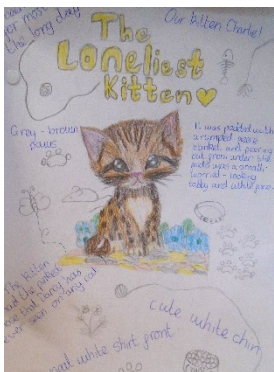 for most
the long day
Our kitten Charlie!
The
Loneliest
Kitten
Grey - brown
paws
It was padded with
a rumpled
blanket, and peering
out from under the
was a small,
worried - looking
tabby and white
The kitten
had the
that has
ever seen on any cat
cute white chin
neat white shirt front